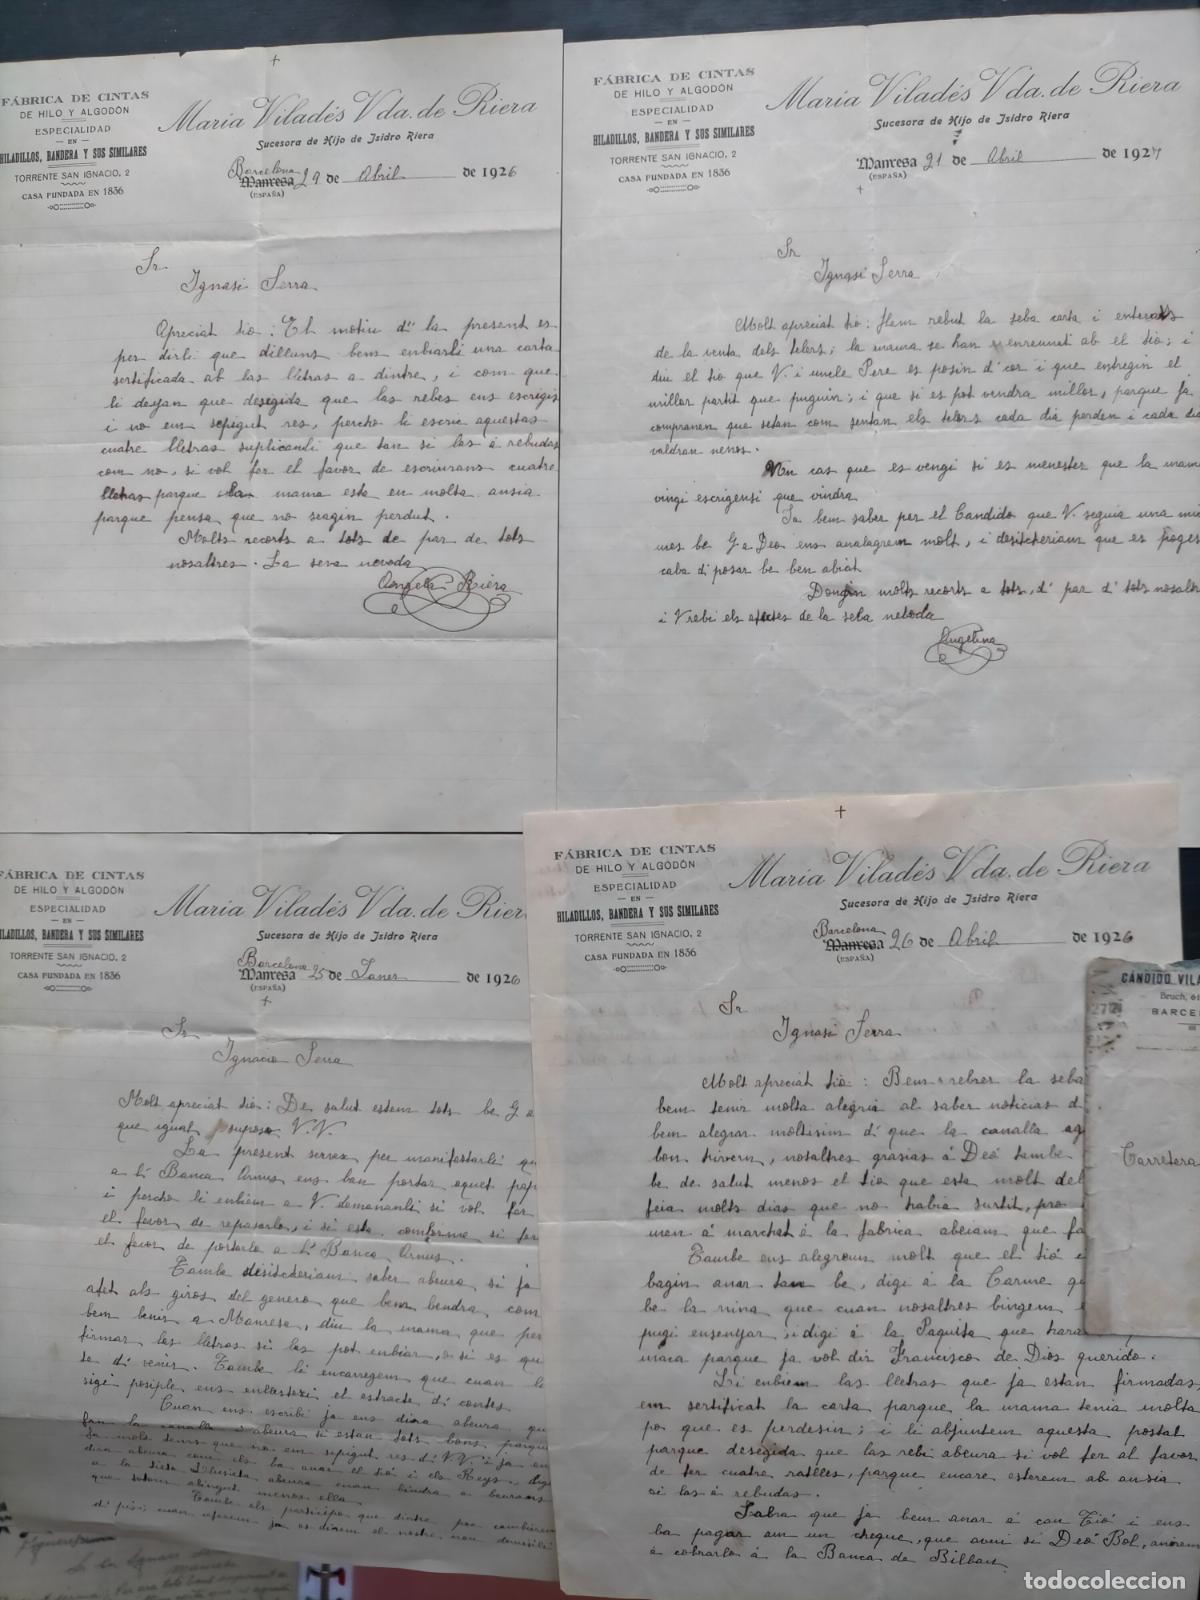 FÁBRICA DE CINTAS
DE HILO Y ALGODÓN
ESPECIALIDAD
EN
HILADILLOS, BANDERA Y SUS SIMILARES
TORRENTE SAN IGNACIO, 2
CASA FUNDADA EN 1836
María Viladés Vda. de Riera
Sucesora de Hijo de Isidro Riera
Barcelona
Manresa 29 de Abril de 1926
(ESPAÑA)
Sr
Ignasi Serra
Apreciat tio: El motiu d' la present es
per dirli que dilluns bem enbiarli una carta
sertificada ab las lletras a dintre, i com que
li deyan que desegida que las rebes ens escrigis
i no ens sepigut res, percho li escric aquestas
cuatre lletras suplicanli que tan si las á rebudas
com no, si vol fer el favor de escriurans cuatre
lletras parque la mama esta en molta ansia
parque pensa que no seagin perdut.
Molts recorts a tots de par de tots
nosaltres. La seva nevoda
Angela Riera
FÁBRICA DE CINTAS
DE HILO Y ALGODÓN
ESPECIALIDAD
EN
HILADILLOS, BANDERA Y SUS SIMILARES
TORRENTE SAN IGNACIO, 2
CASA FUNDADA EN 1836
María Viladés Vda. de Riera
Sucesora de Hijo de Isidro Riera
Manresa 21 de Abril de 1927
(ESPAÑA)
Sr
Ignasi Serra
Molt apreciat tio: Hem rebut la seba carta i enterats
de la venta dels telers; la mama se han enreunit ab el tio; i
diu el tio que V. i uncle Pere es posin d' cor i que entregin el
millor partit que puguin; i que si es pot vendra millor, parque ja
compranen que setan com sentan els telers cada dia perden i cada dia
valdran menos.
En cas que es vengi si es menester que la mama
vingi escrigensi que vindra
Ja bem saber per el Candido que V. seguia una mica
mes be G. a Deo ens analagrem molt, i desitcheriam que es poges
caba d' posar be ben abiat
Dongin molts recorts a tots, d' par d' tots nosaltres
i V rebi els afectes de la seba neboda
Angelina
FÁBRICA DE CINTAS
DE HILO Y ALGODÓN
ESPECIALIDAD
EN
HILADILLOS, BANDERA Y SUS SIMILARES
TORRENTE SAN IGNACIO, 2
CASA FUNDADA EN 1836
María Viladés Vda. de Riera
Sucesora de Hijo de Isidro Riera
Barcelona
Manresa 25 de Janer de 1926
(ESPAÑA)
Sr
Ignacio Serra
Molt apreciat tio: De salut estem tots be G a
que igual suposo V.V.
La present serveix per manifestarli
a l' Banca Arnus ens ban portar aquet
i percho li enbiem a V. demananli si vol fer
el favor de repasarlo, i si esta comforme si fer
el favor de portarlo a l' Banca Arnus.
Tambe desitcheriam saber abeura si ja
afet als giros del genero que bem bendra, com
bem benir a Manresa, diu la mama que per
firmar las lletras si las pot enbiar, o si es que
te d' venir. Tambe li encarregem que cuan li
sigi posiple ens enllestexi el estracte d' contes
Cuan ens escribi ja ens dira abeura
fan la canalla i abeura si estan tots bons parque
fa molt temps que no em sepigut res d' V.V. i ja
dira abeura com els ba anar el tio i els Reys
a la tieta abeura cuan bindra a beurans
que estam menos ella
Tambe els participo que dintre poc
d' pis; cuan ja os direm el nostre nou domicili
FÁBRICA DE CINTAS
DE HILO Y ALGODÓN
ESPECIALIDAD
EN
HILADILLOS, BANDERA Y SUS SIMILARES
TORRENTE SAN IGNACIO, 2
CASA FUNDADA EN 1836
María Viladés Vda. de Riera
Sucesora de Hijo de Isidro Riera
Barcelona
Manresa 26 de Abril de 1926
(ESPAÑA)
Sr
Ignasi Serra
Molt apreciat tio: Bem rebrer la seba
bem tenir molta alegria al saber noticias d
bem alegrar moltisim d' que la canalla ag
bon hivern, nosaltres grasias á Deó tambe
be de salut menos el tio que esta molt del
feia molts dias que no habia surtit, pro
men á marchat á la fabrica abeiam que fa
Tambe ens alegrem molt que el tió i
bagin anar tan be, digi á la Carme qu
be la nina que cuan nosaltres bingem
pugi ensenyar, i digi á la Paquita que hara
maca parque ja vol dir Francisco de Dios querido.
Li enbiem las lletras que ja estan firmadas
em sertificat la carta parque la mama tenia molta
po que es perdesin; i li abjuntem aquesta postal
parque desegida que las rebi abeura si vol fer al favor
de fer cuatre ratlles, parque encare esterem ab ansia
si las á rebudas.
Sabra que ja bem anar á can Tió i ens
ba pagar am un cheque, que avui si Deó Bol, anirem
á cobrarlo á la Banca de Bilbau
CÁNDIDO VILA
Bruch, 6
BARCE
Carretera
todocoleccion